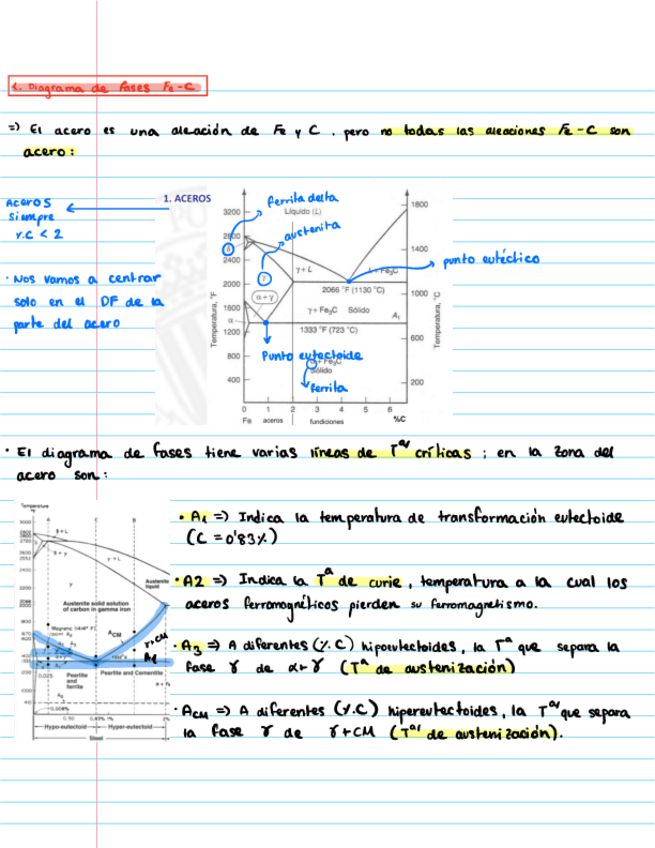 1. Diagrama de fases Fe-C
=) El acero es una aleación de Fe y C, pero no todas las aleaciones Fe-C son
acero:
Aceros
siempre
%C < 2
· Nos vamos a centrar
solo en el DF de la
parte del acero
1. ACEROS
ferrita delta
Líquido (L)
austenita
punto eutéctico
3200
2800
2400
2000
1600
1200
800
400
Temperatura, °F
1800
1400
1000
600
200
Temperatura, °C
δ
γ
γ+L
L+Fe₃C
2066 °F (1130 °C)
α+γ
γ+Fe₃C Sólido
A₁
α
1333 °F (723 °C)
Punto eutectoide
α+Fe₃C
Sólido
ferrita
0 1 2 3 4 5 6
Fe aceros fundiciones %C
· El diagrama de fases tiene varias líneas de Tᵃˢ críticas; en la zona del
acero son:
· A1 =) Indica la temperatura de transformación eutectoide
(C = 0'83%)
· A2 =) Indica la Tᵃ de curie, temperatura a la cual los
aceros ferromagnéticos pierden su ferromagnetismo.
· A3 =) A diferentes (%C) hipoeutectoides, la Tᵃ que separa la
fase γ de α+γ (Tᵃ de austenización)
· ACM =) A diferentes (%C) hipereutectoides, la Tᵃˢ que separa
la fase γ de γ+CM (Tᵃˢ de austenización).
Temperature
δ+L
δ+γ
γ+L
γ
Austenite
liquid
Austenite solid solution
of carbon in gamma iron
ACM
γ+CM
A1
0.025
Pearlite
and
ferrite
Pearlite and Cementite
0.008%
0.50 0.83% 1% 2%
Hypo-eutectoid Hyper-eutectoid
Steel